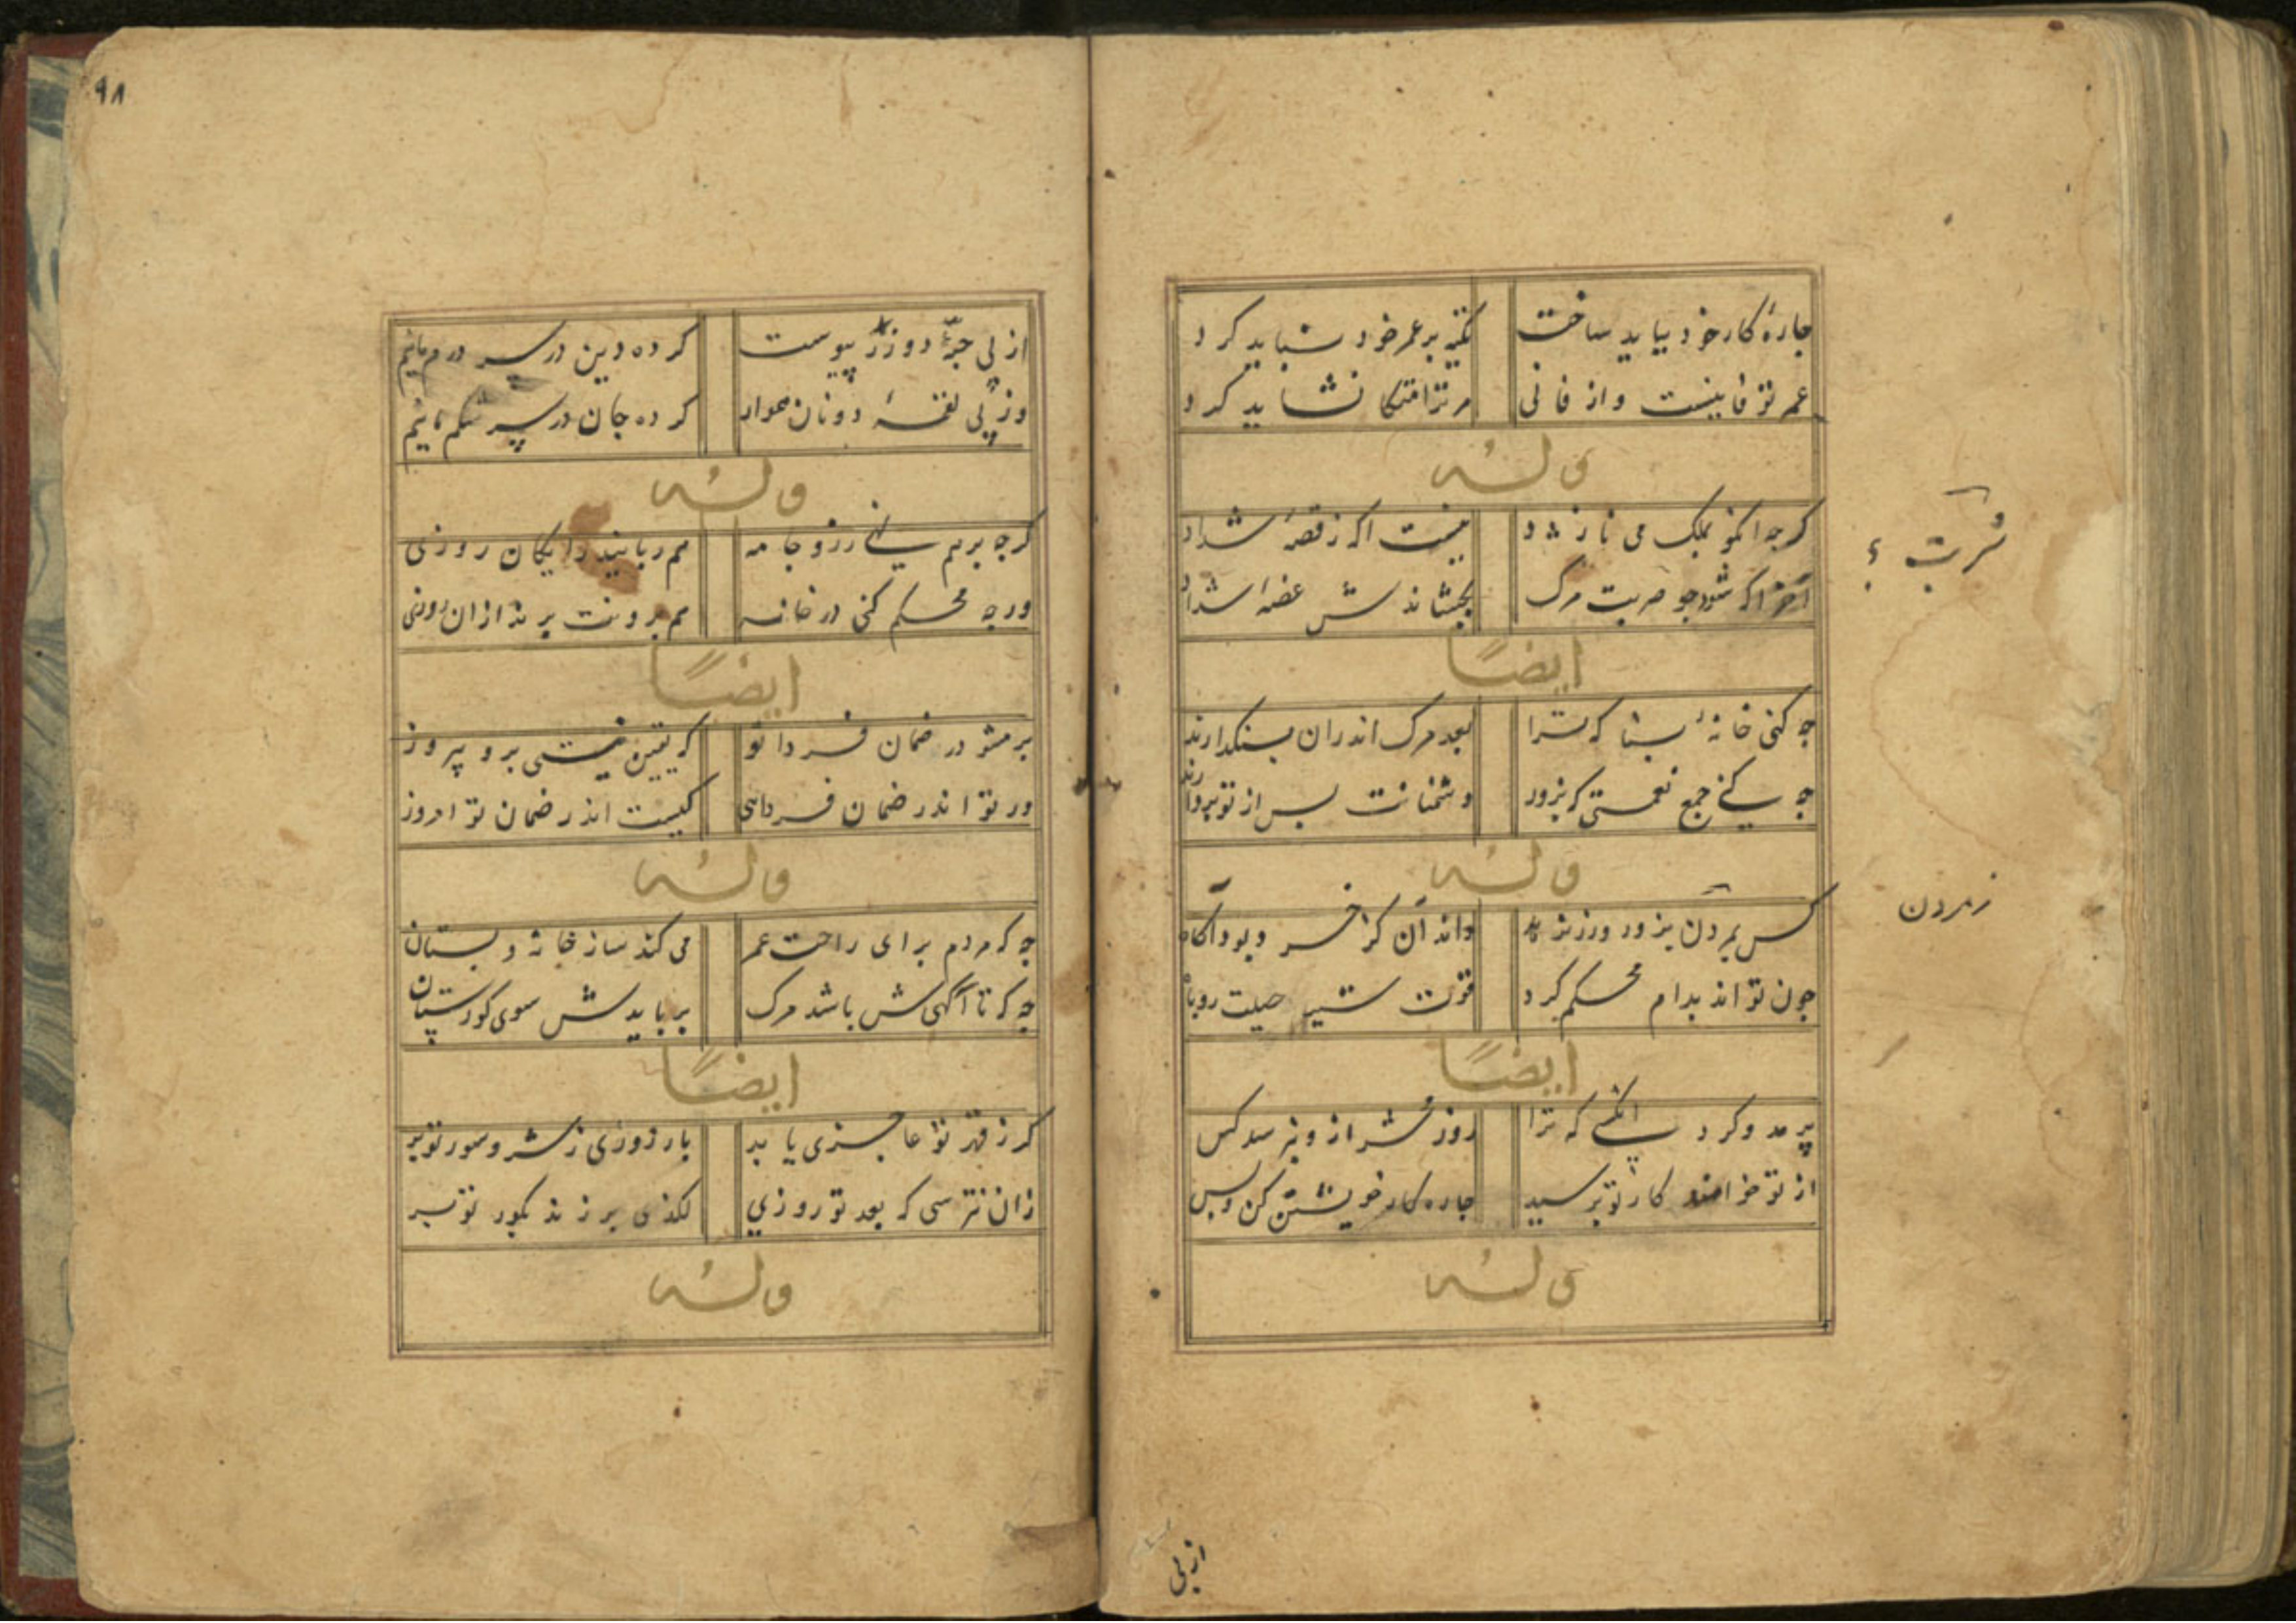 چارهٔ کار خود بباید ساخت
تکیه بر عمر خود نشاید کرد
عمر تو فانیست و از فانی
مر ترا متکا نشاید کرد
وله
کرجه اکنو بملک می نازد
نیست اکه ز قصهٔ شداد
آخر اکه شود جو مرک
بچشاندش غصهٔ شداد
قربت ؟
ایضا
جه کنی خانهٔ بنا که ترا
بعد مرک اندران بنکدارند
جه کنی جمع نعمتی که بزور
دشمنانت بس از تو بردارند
وله
کس بمردن بزور ورزند
داند آن کز خسرو بود آکاه
زمردن
جون تواند بدام محکم کرد
قوت شیر حیلت روباه
ایضا
بدمدو کرد انکسی که ترا
روز محشر از و نپرسد کس
از تو خواهند کار تو پرسید
جاره کار خویشتن کن وبس
وله
ازپی
٩٨
ازپی جبهٔ دوزر پیوست
کرده دین درسر درم مانیم
وزپی لقمهٔ دونان هموار
کرده جان درسر شکم مانیم
وله
کرجه برهم نهی زر و جامه
هم ربایند رایکان روزی
ورجه محکم کنی در خانه
هم برونت برند ازان روزی
ایضا
بر مشو در ضمان فردا تو
که یقین نیستی برو پیروز
ور تو اندر ضمان فردایی
کیست اندر ضمان تو امروز
وله
جه که مردم برای راحت عمر
می کند ساز خانه و بستان
جه که تا آکهی‌ش باشد مرک
بربایدش سوی کورستان
ایضا
کر ز قهر تو عاجزی یابد
بار زوری ز شر و سور تو بر
زان نترسی که بعد تو روزی
لکدی برزند بکور تو بر
وله